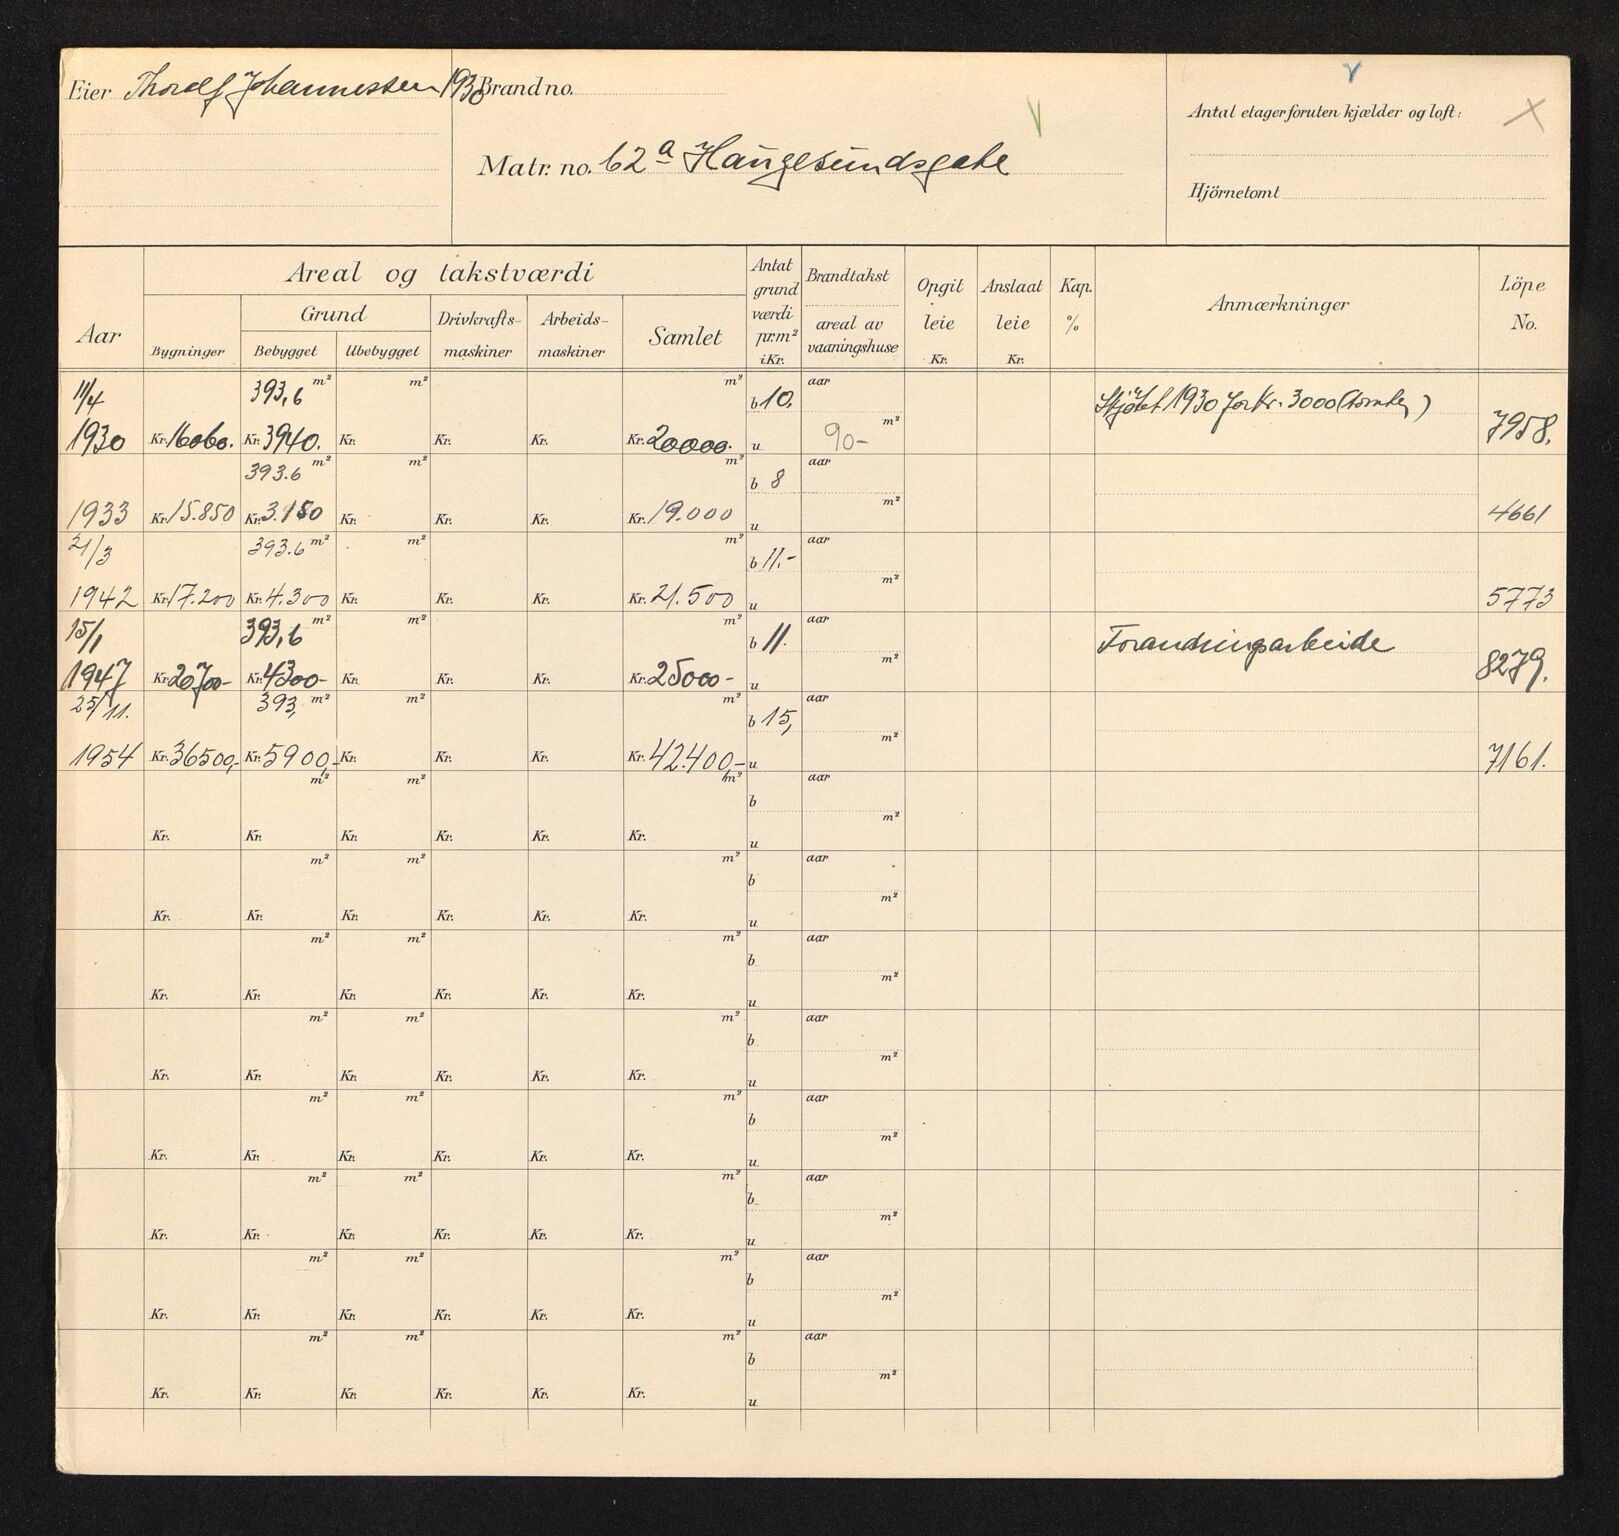 Eier Thoralf Johannessen 1930
Brand no.
Matr. no. 62 a Haugesundsgate
Antal etager foruten kjælder og loft:
Hjörnetomt
Aar
Areal og takstværdi
Grund
Bygninger
Bebygget
Ubebygget
Drivkrafts-
maskiner
Arbeids-
maskiner
Samlet
Antat
grund
værdi
pr. m²
i Kr.
Brandtakst
areal av
vaaningshuse
Opgit
leie
Kr.
Anslaat
leie
Kr.
Kap.
%
Anmærkninger
Löpe
No.
11/4 393,6 m² m² m² b 10. aar Skjötet 1930 for Kr. 3000 (tomten)
1930 Kr. 16060. Kr. 3940. Kr. Kr. Kr. Kr. 20000. u 90- m² 7958.
393.6 m² m² m² b 8 aar
1933 Kr. 15.850 Kr. 3.150 Kr. Kr. Kr. Kr. 19.000 u m² 4661
21/3 393.6 m² m² m² b 11.- aar
1942 Kr. 17.200 Kr. 4.300 Kr. Kr. Kr. Kr. 21.500 u m² 5773
15/1 393,6 m² m² m² b 11. aar Forandringsarbeide
1947 Kr. 20700- Kr. 4300- Kr. Kr. Kr. Kr. 25000- u m² 8279.
25/11. 393, m² m² m² b 15, aar
1954 Kr. 36500,- Kr. 5900,- Kr. Kr. Kr. Kr. 42.400,- u m² 7161.
m² m² m² b aar
Kr. Kr. Kr. Kr. Kr. Kr. u m²
m² m² m² b aar
Kr. Kr. Kr. Kr. Kr. Kr. u m²
m² m² m² b aar
Kr. Kr. Kr. Kr. Kr. Kr. u m²
m² m² m² b aar
Kr. Kr. Kr. Kr. Kr. Kr. u m²
m² m² m² b aar
Kr. Kr. Kr. Kr. Kr. Kr. u m²
m² m² m² b aar
Kr. Kr. Kr. Kr. Kr. Kr. u m²
m² m² m² b aar
Kr. Kr. Kr. Kr. Kr. Kr. u m²
m² m² m² b aar
Kr. Kr. Kr. Kr. Kr. Kr. u m²